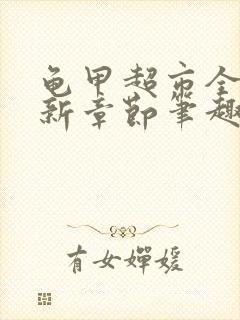 龟甲超市全
新章节笔趣
有女婵媛